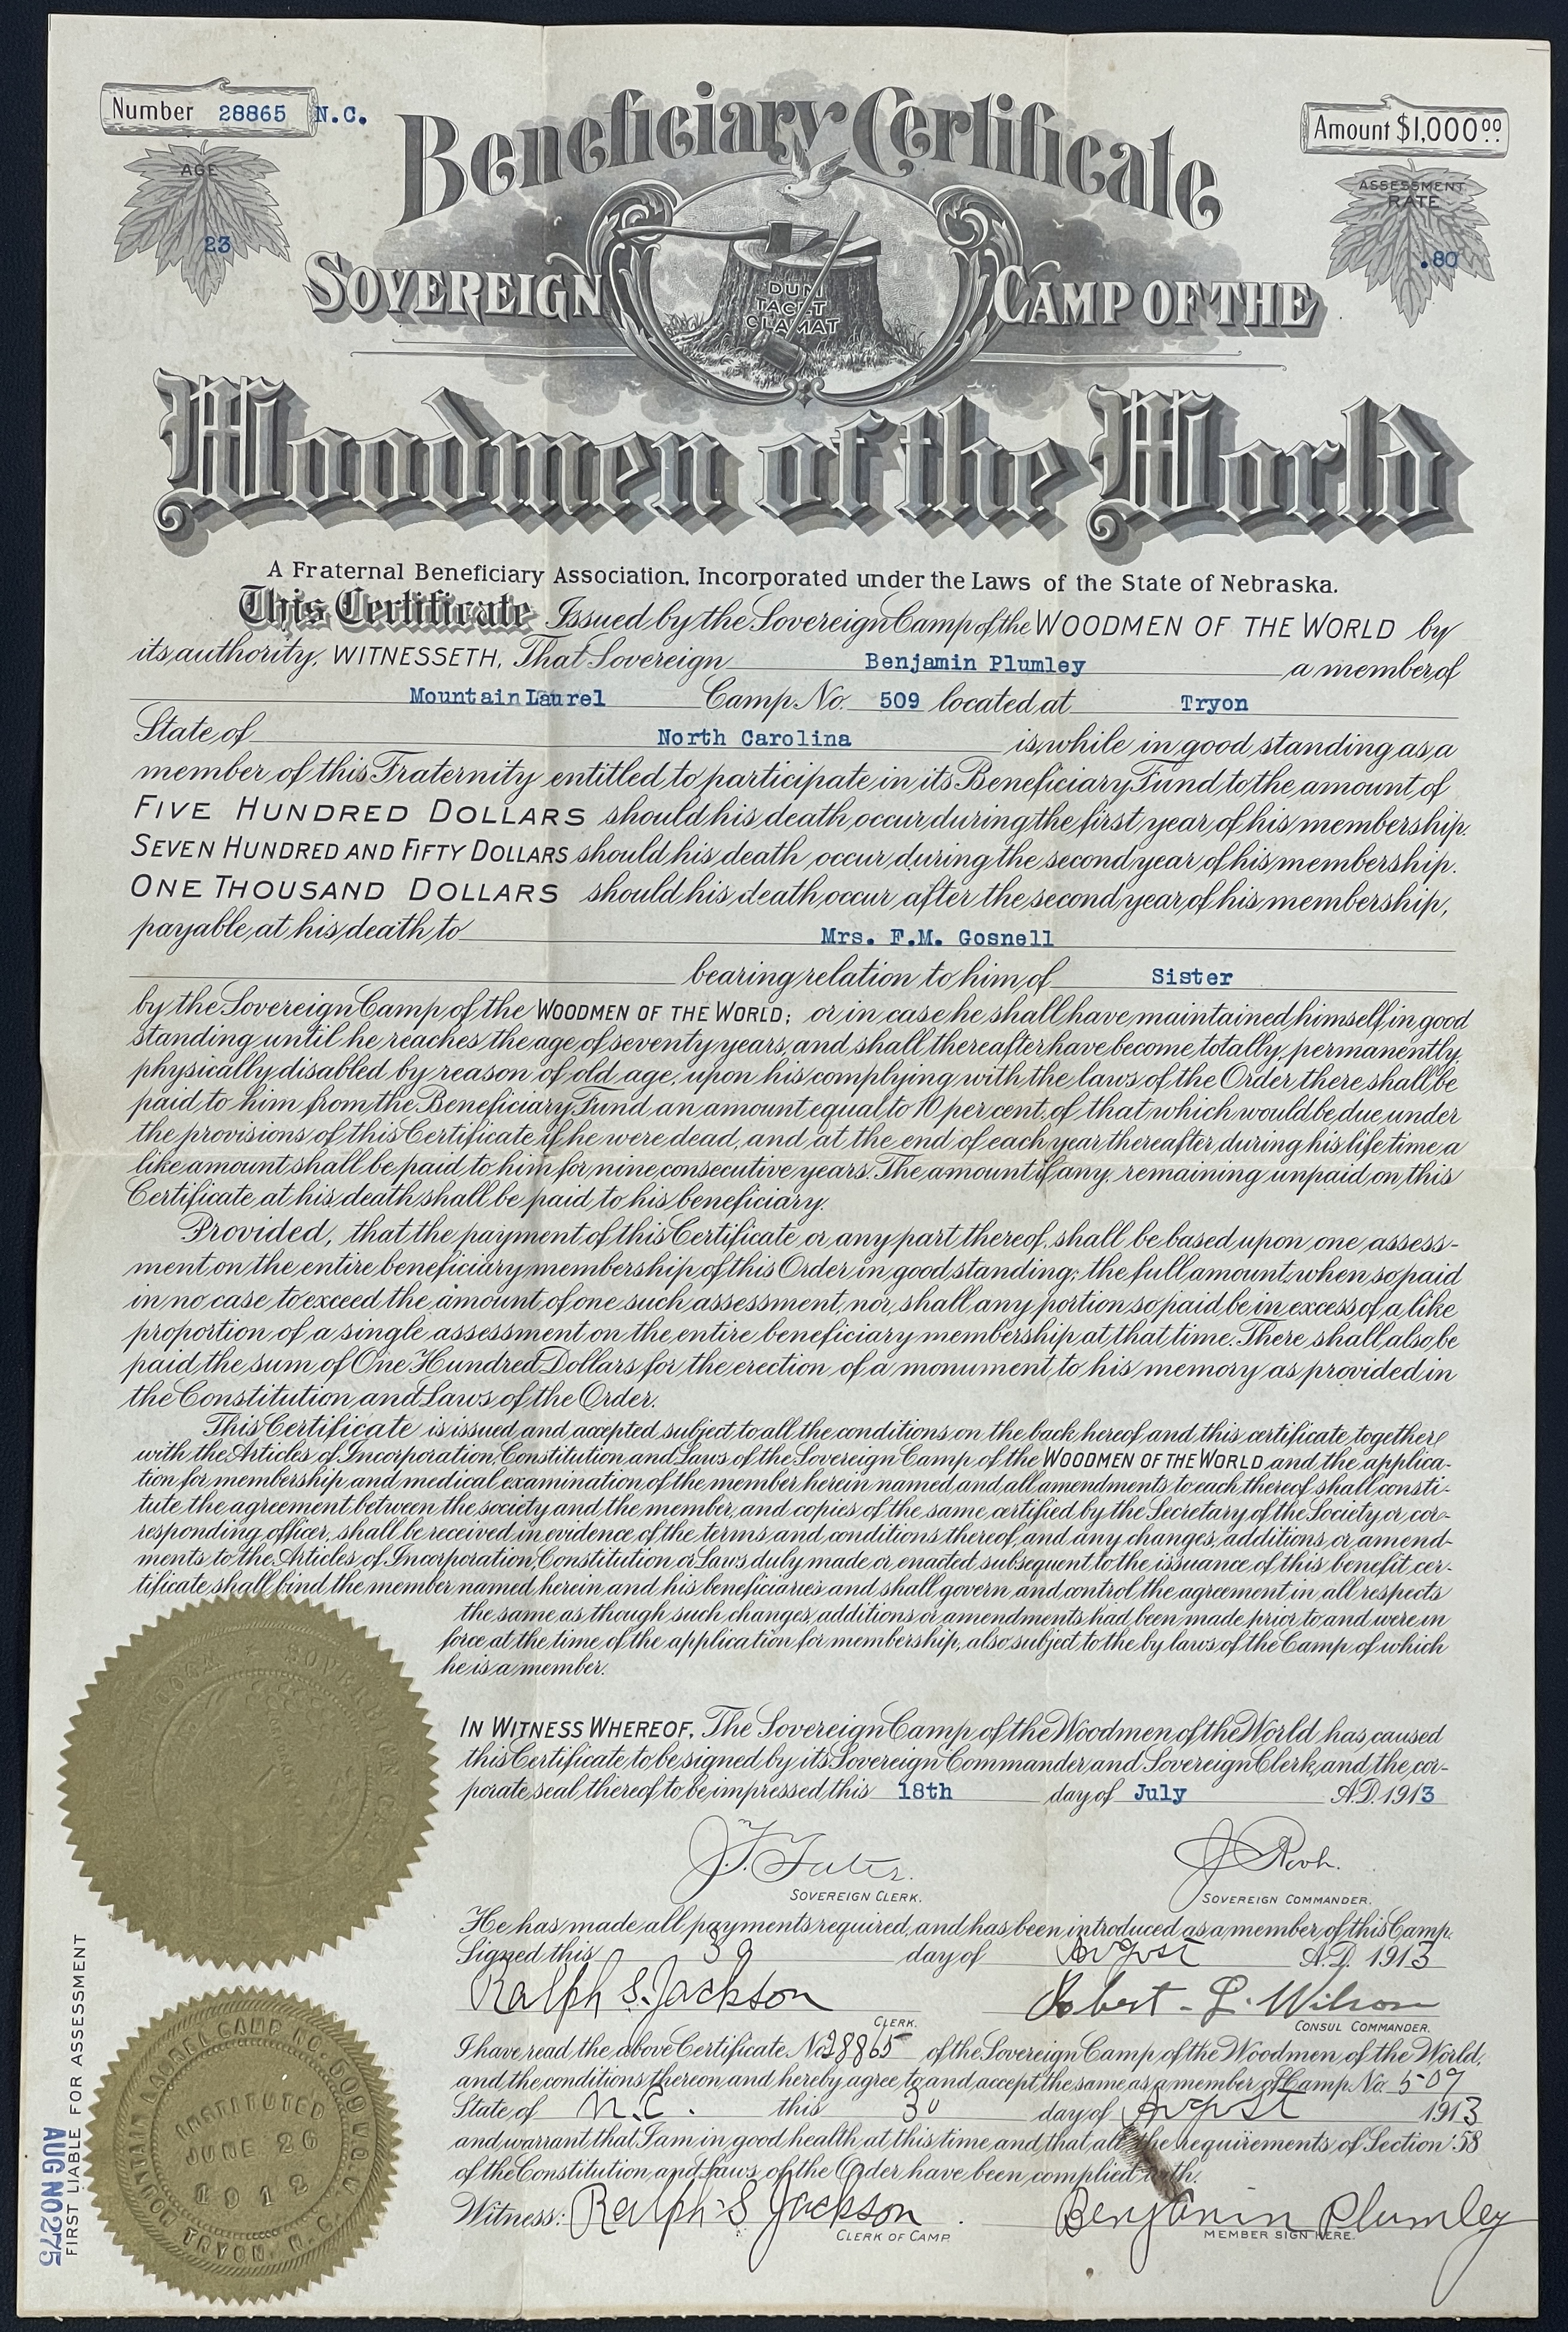 Number 28865 N.C.
Amount $1,000 00
AGE
23
ASSESSMENT
RATE
.80
Beneficiary Certificate
DUM
TACET
CLAMAT
SOVEREIGN CAMP OF THE
Woodmen of the World
A Fraternal Beneficiary Association, Incorporated under the Laws of the State of Nebraska.
This Certificate Issued by the Sovereign Camp of the WOODMEN OF THE WORLD by
its authority, WITNESSETH, That Sovereign Benjamin Plumley a member of
Mountain Laurel Camp No. 509 located at Tryon
State of North Carolina is, while in good standing as a
member of this Fraternity entitled to participate in its Beneficiary Fund to the amount of
FIVE HUNDRED DOLLARS should his death occur during the first year of his membership.
SEVEN HUNDRED AND FIFTY DOLLARS should his death occur during the second year of his membership.
ONE THOUSAND DOLLARS should his death occur after the second year of his membership,
payable at his death to Mrs. F.M. Gosnell
bearing relation to him of Sister
by the Sovereign Camp of the WOODMEN OF THE WORLD; or in case he shall have maintained himself in good
standing until he reaches the age of seventy years, and shall thereafter have become totally, permanently,
physically disabled by reason of old age, upon his complying with the laws of the Order there shall be
paid to him from the Beneficiary Fund an amount equal to 10 per cent. of that which would be due under
the provisions of this Certificate if he were dead, and at the end of each year thereafter during his life time a
like amount shall be paid to him for nine consecutive years. The amount if any, remaining unpaid on this
Certificate at his death shall be paid to his beneficiary.
Provided, that the payment of this Certificate or any part thereof, shall be based upon one assess-
ment on the entire beneficiary membership of this Order in good standing; the full amount, when so paid
in no case to exceed the amount of one such assessment, nor, shall any portion so paid be in excess of a like
proportion of a single assessment on the entire beneficiary membership at that time. There shall also be
paid the sum of One Hundred Dollars for the erection of a monument to his memory as provided in
the Constitution and Laws of the Order.
This Certificate is issued and accepted subject to all the conditions on the back hereof and this certificate, together
with the Articles of Incorporation, Constitution and Laws of the Sovereign Camp of the WOODMEN OF THE WORLD and the applica-
tion for membership and medical examination of the member herein named and all amendments to each thereof shall consti-
tute the agreement between the society and the member, and copies of the same certified by the Secretary of the Society or cor-
responding officer, shall be received in evidence of the terms and conditions thereof, and any changes, additions, or amend-
ments to the Articles of Incorporation, Constitution or Laws duly made or enacted subsequent to the issuance of this benefit cer-
tificate shall bind the member named herein and his beneficiaries and shall govern and control the agreement in all respects
the same as though such changes, additions or amendments had been made prior to and were in
force at the time of the application for membership, also subject to the by laws of the Camp of which
he is a member.
IN WITNESS WHEREOF, The Sovereign Camp of the Woodmen of the World has caused
this Certificate to be signed by its Sovereign Commander and Sovereign Clerk, and the cor-
porate seal thereof to be impressed this 18th day of July A.D. 1913
J.T. Yates.
SOVEREIGN CLERK.
J Root.
SOVEREIGN COMMANDER.
He has made all payments required, and has been introduced as a member of this Camp.
Signed this 30 day of August A.D. 1913
Ralph S. Jackson
CLERK.
Robert L. Wilson
CONSUL COMMANDER.
I have read the above Certificate No. 28865 of the Sovereign Camp of the Woodmen of the World,
and the conditions thereon and hereby agree to and accept the same as a member of Camp No. 509
State of N.C. this 30 day of August 1913
and warrant that I am in good health at this time and that all the requirements of Section 58
of the Constitution and Laws of the Order have been complied with.
Witness: Ralph S Jackson
CLERK OF CAMP.
Benjamin Plumley
MEMBER SIGN HERE.
MOUNTAIN LAUREL CAMP NO. 509 W.O.W.
INSTITUTED
JUNE 26
1912
TRYON, N.C.
FIRST LIABLE FOR ASSESSMENT
AUG NO 275